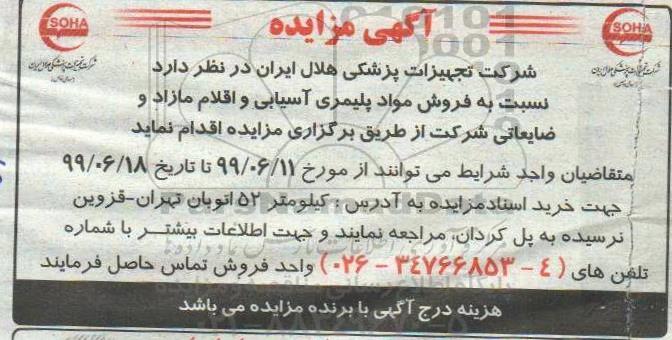 آگهی مزایده
SOHA
SOHA
شرکت تجهیزات پزشکی هلال ایران
شرکت تجهیزات پزشکی هلال ایران
شرکت تجهیزات پزشکی هلال ایران در نظر دارد
نسبت به فروش مواد پلیمری آسیابی و اقلام مازاد و
ضایعاتی شرکت از طریق برگزاری مزایده اقدام نماید
متقاضیان واجد شرایط می توانند از مورخ ۹۹/۰۶/۱۱ تا تاریخ ۹۹/۰۶/۱۸
جهت خرید اسنادمزایده به آدرس : کیلومتر ۵۲ اتوبان تهران-قزوین
نرسیده به پل کردان، مراجعه نمایند و جهت اطلاعات بیشتر با شماره
تلفن های (۴ - ۳۴۷۶۶۸۵۳ - ۰۲۶) واحد فروش تماس حاصل فرمایند
هزینه درج آگهی با برنده مزایده می باشد